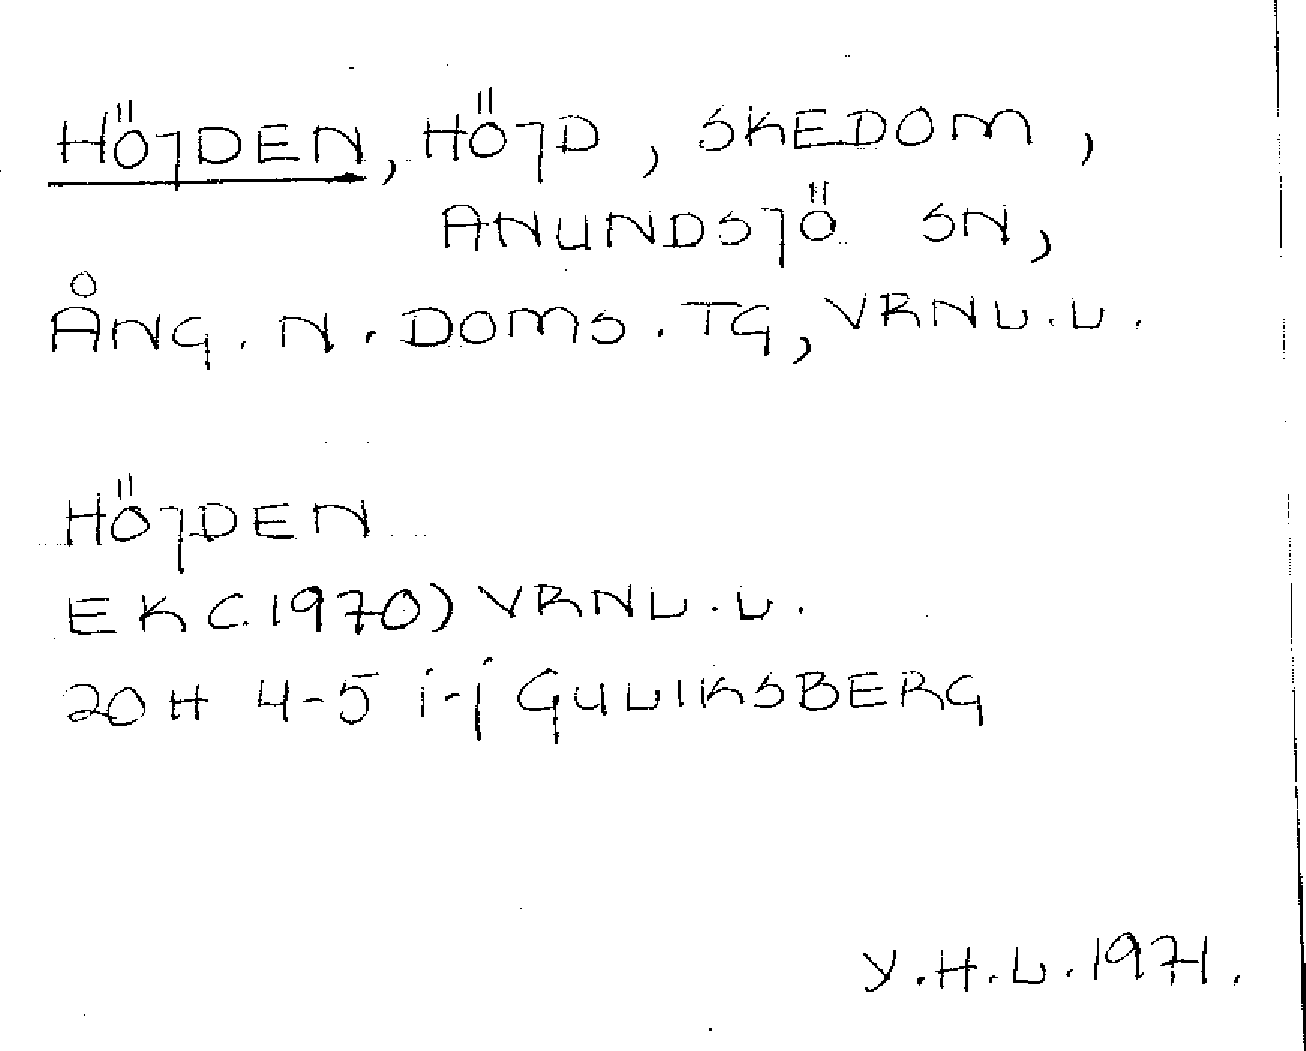 HÖJDEN, HÖJD, SKEDOM,
ANUNDSJÖ SN,
ÅNG. N. DOMS. TG, VRNL.L.
HÖJDEN
EK (1970) VRNL.L.
20H 4-5 i-j GULLIKSBERG
Y.H.L. 1971.